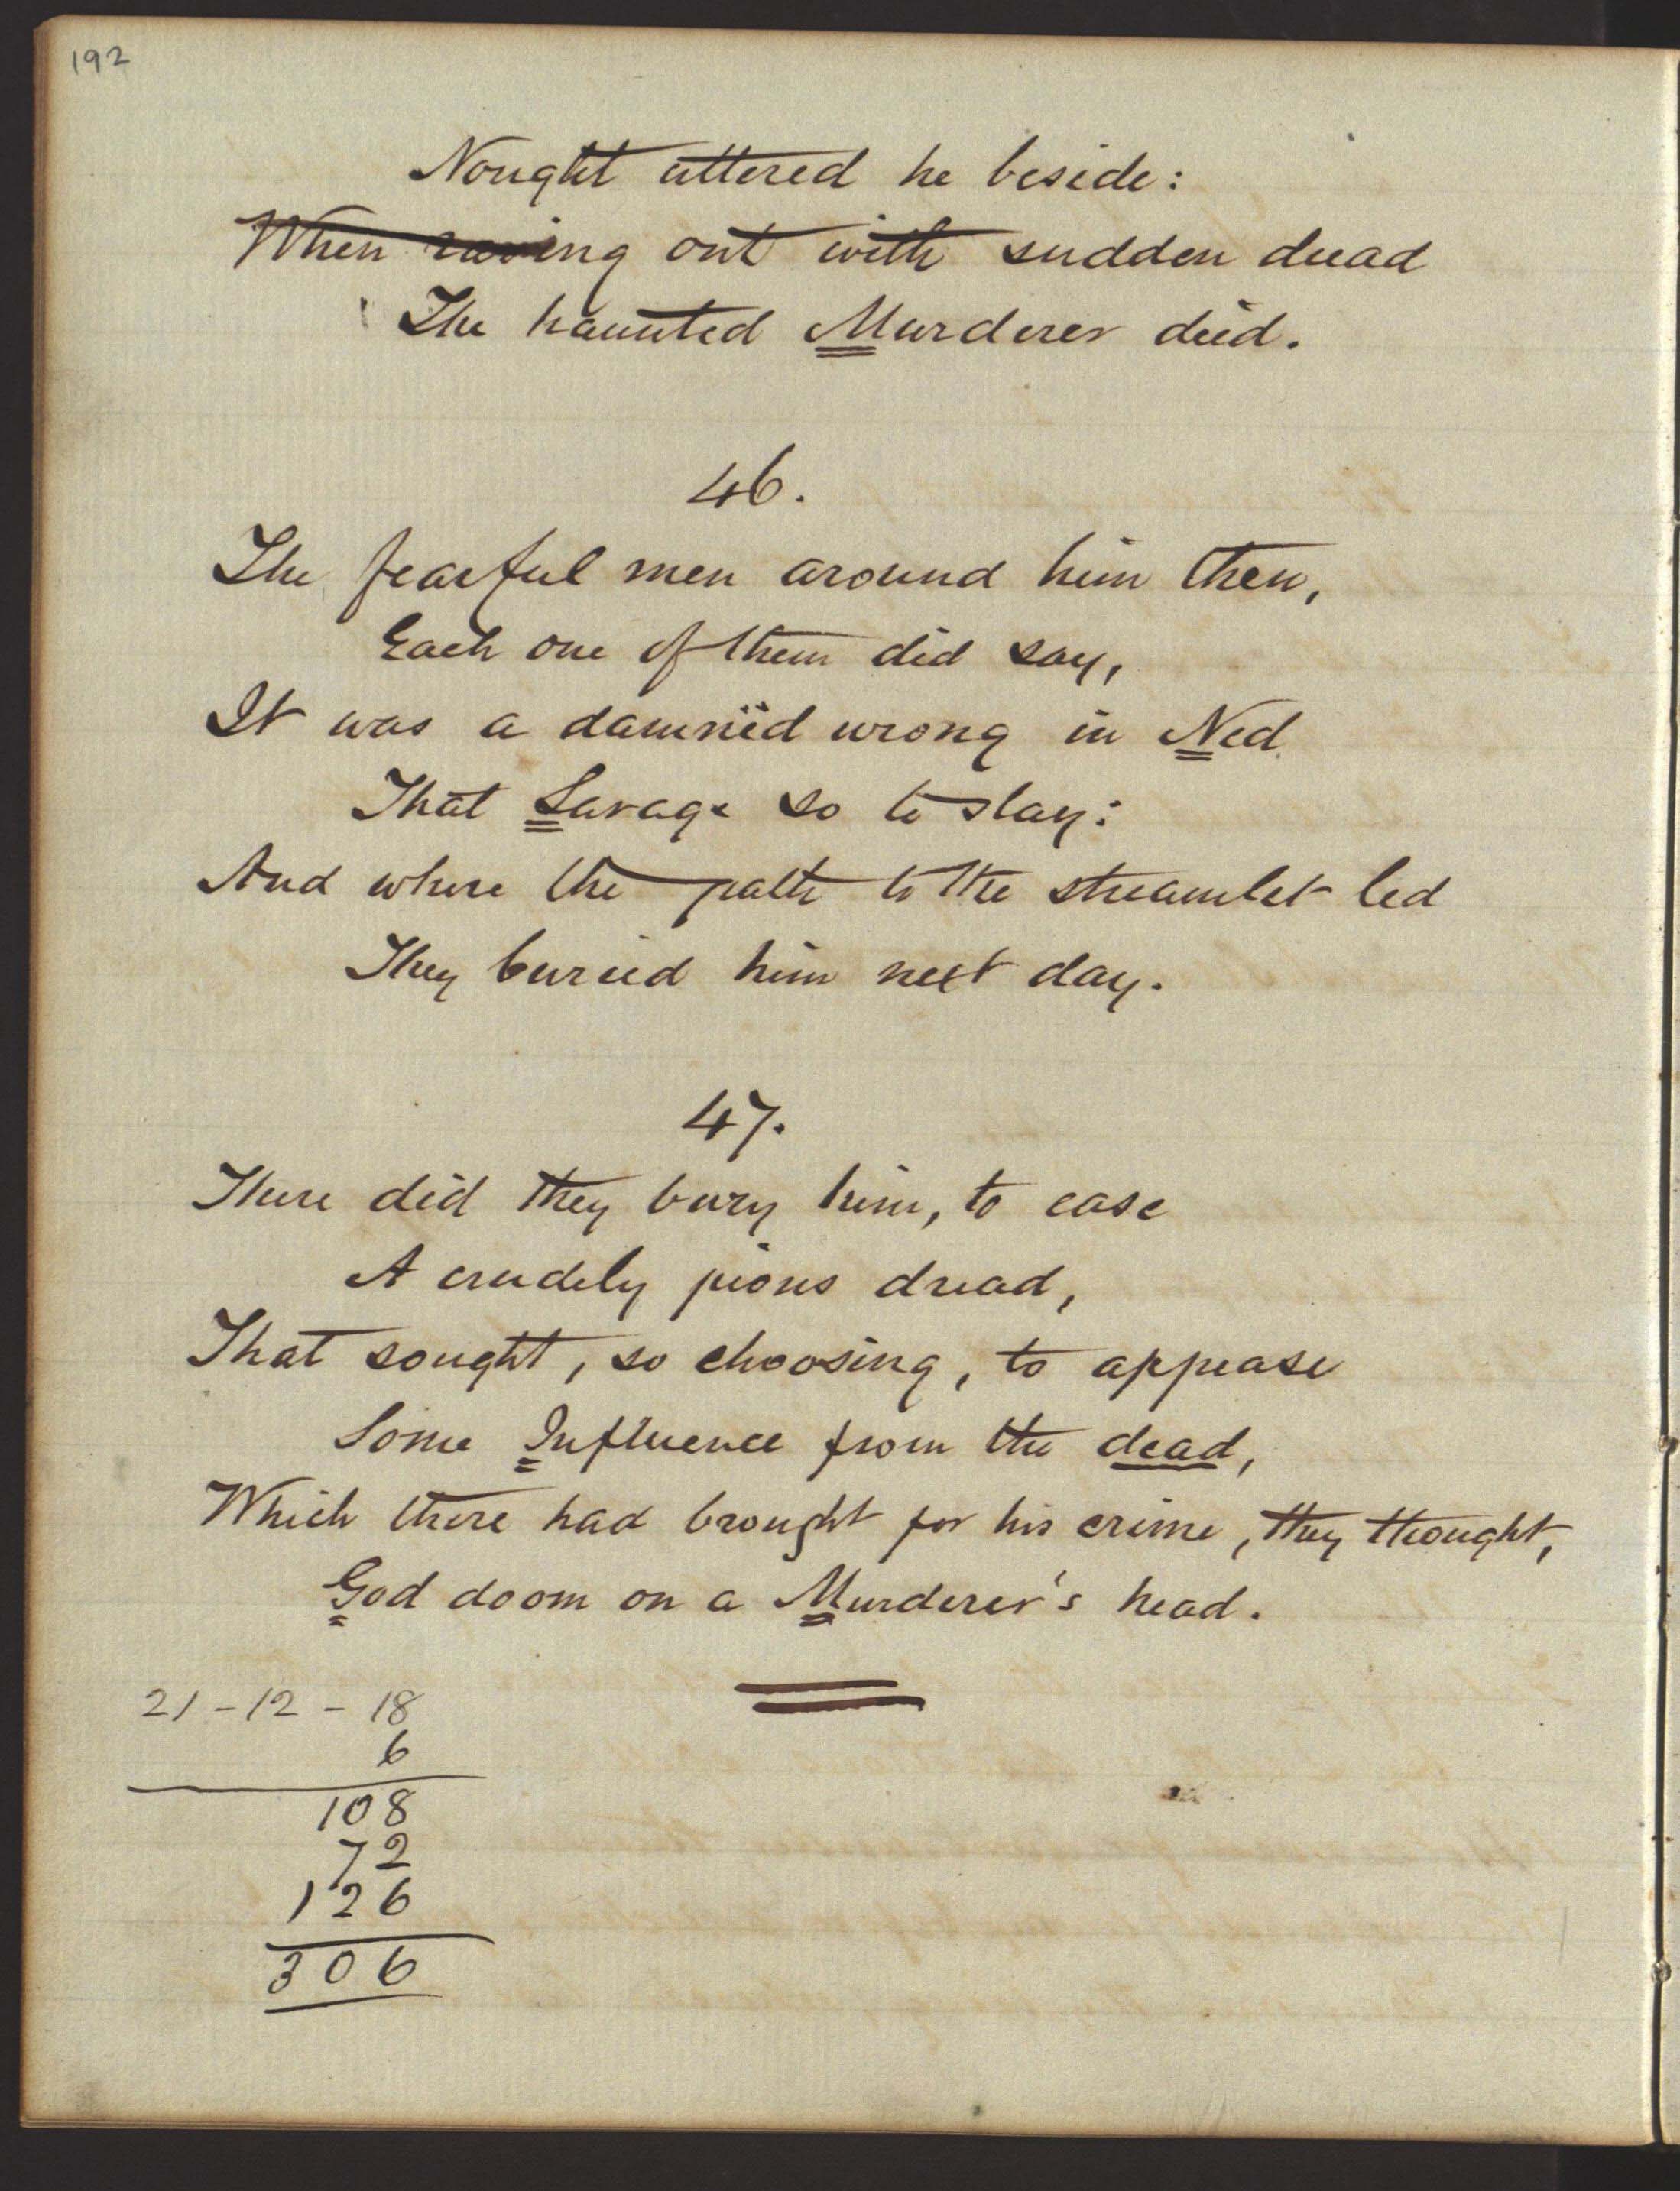 192
Nought uttered he beside:
When raving out with sudden dread
The haunted Murderer died.
46.
The fearful men around him then,
Each one of them did say,
It was a damnëd wrong in Ned
That Savage so to slay:
And where the path to the streamlet led
They buried him next day.
47.
There did they bury him, to ease
A crudely pious dread,
That sought, so choosing, to appease
Some Influence from the dead,
Which there had brought for his crime, they thought,
God doom on a Murderer's head.
21-12-18
6
108
72
126
306